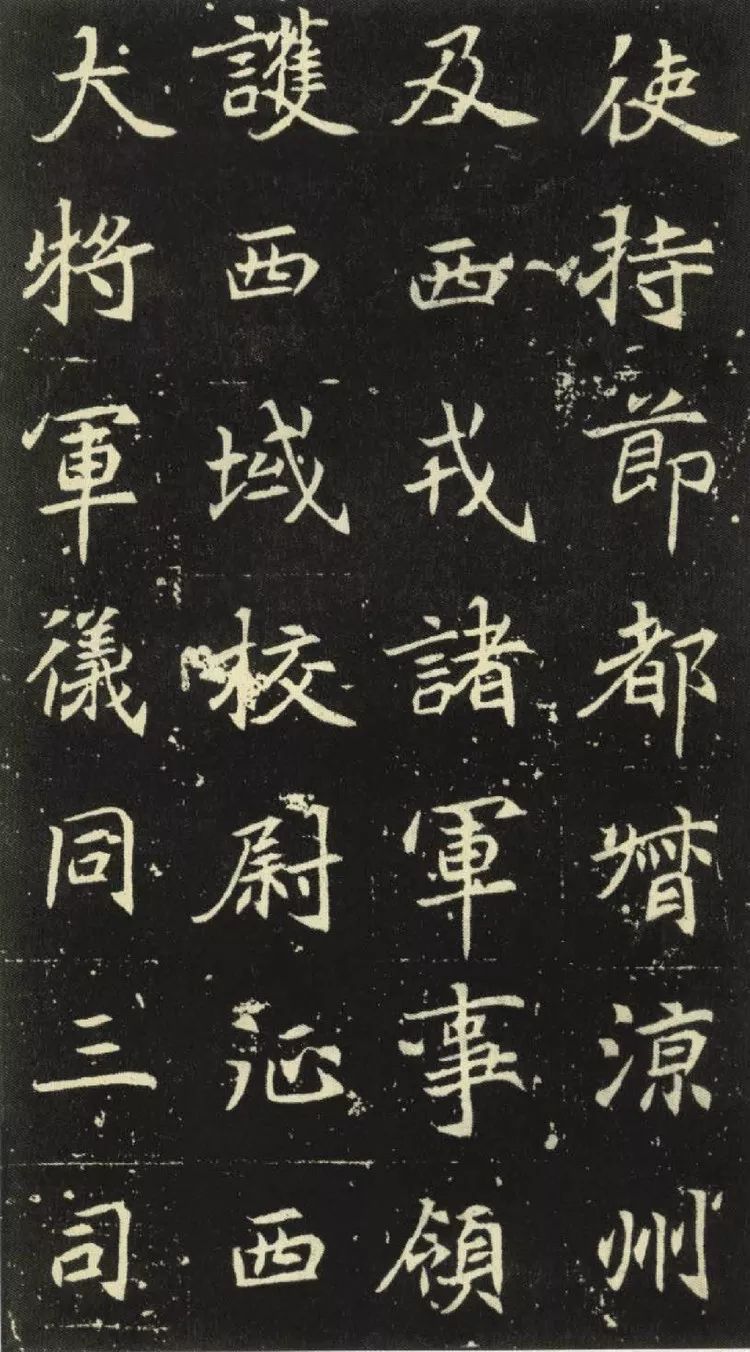 使持節都督涼州
及西戎諸軍事領
護西域校尉征西
大將軍儀同三司